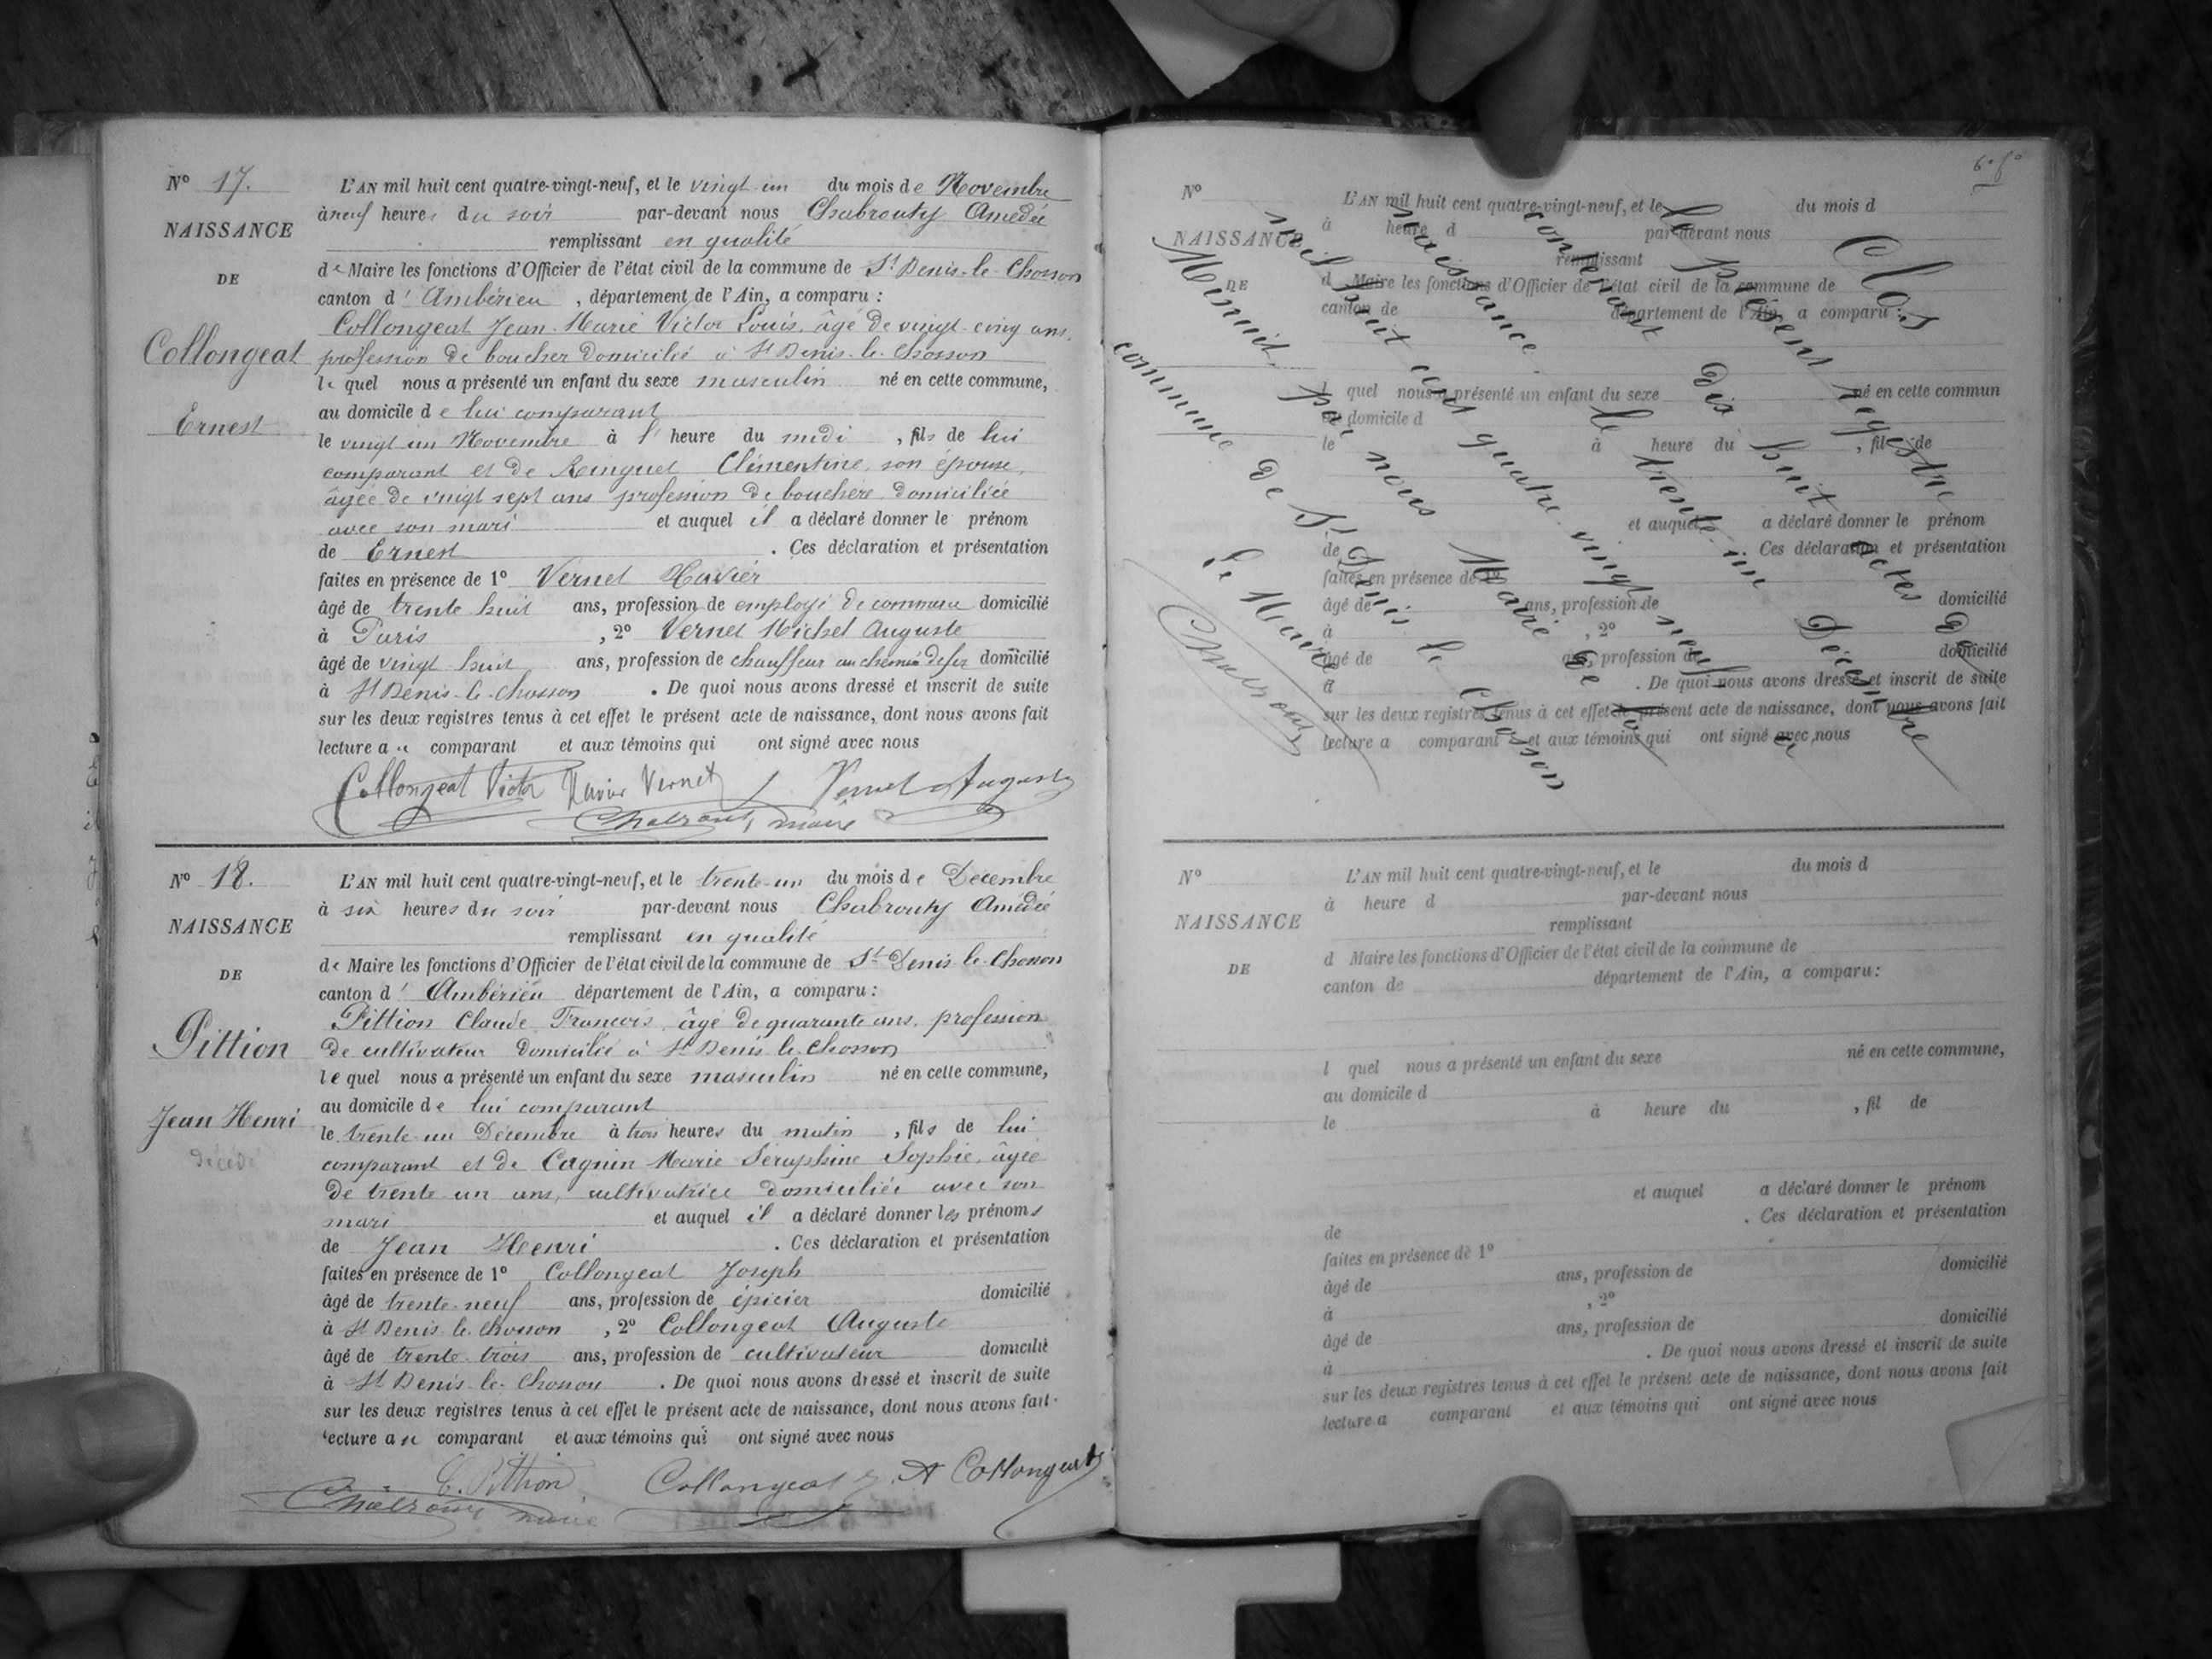 N° 17.
NAISSANCE
DE
Collongeat
Ernest
L'AN mil huit cent quatre-vingt-neuf, et le vingt-un du mois de Novembre
à neuf heures du soir par-devant nous Chabrouty Amédée
remplissant en qualité
de Maire les fonctions d'Officier de l'état civil de la commune de St Denis-le-Chosson
canton d'Ambérieu, département de l'Ain, a comparu :
Collongeat Jean-Marie Victor Louis, âgé de vingt-cinq ans,
profession de boucher domicilié à St Denis-le-Chosson
lequel nous a présenté un enfant du sexe masculin né en cette commune,
au domicile de lui comparant
le vingt un Novembre à l' heure du midi, fils de lui
comparant et de Clémentine, son épouse,
âgée de vingt sept ans profession de bouchère domiciliée
avec son mari et auquel il a déclaré donner le prénom
de Ernest. Ces déclaration et présentation
faites en présence de 1° Vernet Xavier
âgé de trente huit ans, profession de employé de commerce domicilié
à Paris, 2° Vernet Michel Auguste
âgé de vingt-huit ans, profession de chauffeur au chemin de fer domicilié
à St Denis-le-Chosson. De quoi nous avons dressé et inscrit de suite
sur les deux registres tenus à cet effet le présent acte de naissance, dont nous avons fait
lecture au comparant et aux témoins qui ont signé avec nous
Collongeat Victor Xavier Vernet Vernet Auguste
Chabrouty maire
N° 18.
NAISSANCE
DE
Pittion
Jean Henri
décédé
L'AN mil huit cent quatre-vingt-neuf, et le trente-un du mois de Décembre
à six heures du soir par-devant nous Chabrouty Amédée
remplissant en qualité
de Maire les fonctions d'Officier de l'état civil de la commune de St Denis-le-Chosson
canton d'Ambérieu département de l'Ain, a comparu :
Pittion Claude François, âgé de quarante ans, profession
de cultivateur domicilié à St Denis-le-Chosson
lequel nous a présenté un enfant du sexe masculin né en cette commune,
au domicile de lui comparant
le trente-un Décembre à trois heures du matin, fils de lui
comparant et de Cagnin Marie Séraphine Sophie, âgée
de trente-un ans, cultivatrice domiciliée avec son
mari et auquel il a déclaré donner les prénoms
de Jean Henri. Ces déclaration et présentation
faites en présence de 1° Collongeat Joseph
âgé de trente-neuf ans, profession de épicier domicilié
à St Denis-le-Chosson, 2° Collongeat Auguste
âgé de trente-trois ans, profession de cultivateur domicilié
à St Denis-le-Chosson. De quoi nous avons dressé et inscrit de suite
sur les deux registres tenus à cet effet le présent acte de naissance, dont nous avons fait
lecture au comparant et aux témoins qui ont signé avec nous
C. Pittion Collongeat J. A Collongeat
Chabrouty maire
N°
NAISSANCE
DE
L'AN mil huit cent quatre-vingt-neuf, et le du mois d
à heure d par-devant nous
remplissant
d Maire les fonctions d'Officier de l'état civil de la commune de
canton de département de l'Ain, a comparu :
l quel nous a présenté un enfant du sexe né en cette commun
au domicile d
le à heure du , fil de
et auquel a déclaré donner le prénom
de Ces déclaration et présentation
faites en présence de 1°
âgé de ans, profession de domicilié
à , 2°
âgé de ans, profession de domicilié
à . De quoi nous avons dressé et inscrit de suite
sur les deux registres tenus à cet effet le présent acte de naissance, dont nous avons fait
lecture a comparant et aux témoins qui ont signé avec nous
Clos
le présent registre
contenant dix huit actes de
naissance. le trente-un Décembre
mil huit cent quatre-vingt neuf à
Minuit. par nous Maire de la
commune de St Denis le Chosson
Le Maire
Chabrouty
N°
NAISSANCE
DE
L'AN mil huit cent quatre-vingt-neuf, et le du mois d
à heure d par-devant nous
remplissant
d Maire les fonctions d'Officier de l'état civil de la commune de
canton de département de l'Ain, a comparu :
l quel nous a présenté un enfant du sexe né en cette commune,
au domicile d
le à heure du , fil de
et auquel a déclaré donner le prénom
de . Ces déclaration et présentation
faites en présence de 1°
âgé de ans, profession de domicilié
à , 2°
âgé de ans, profession de domicilié
à . De quoi nous avons dressé et inscrit de suite
sur les deux registres tenus à cet effet le présent acte de naissance, dont nous avons fait
lecture a comparant et aux témoins qui ont signé avec nous